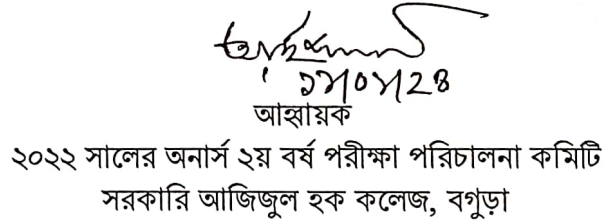 আহ্বায়ক
২০২২ সালের অনার্স ২য় বর্ষ পরীক্ষা পরিচালনা কমিটি
সরকারি আজিজুল হক কলেজ, বগুড়া